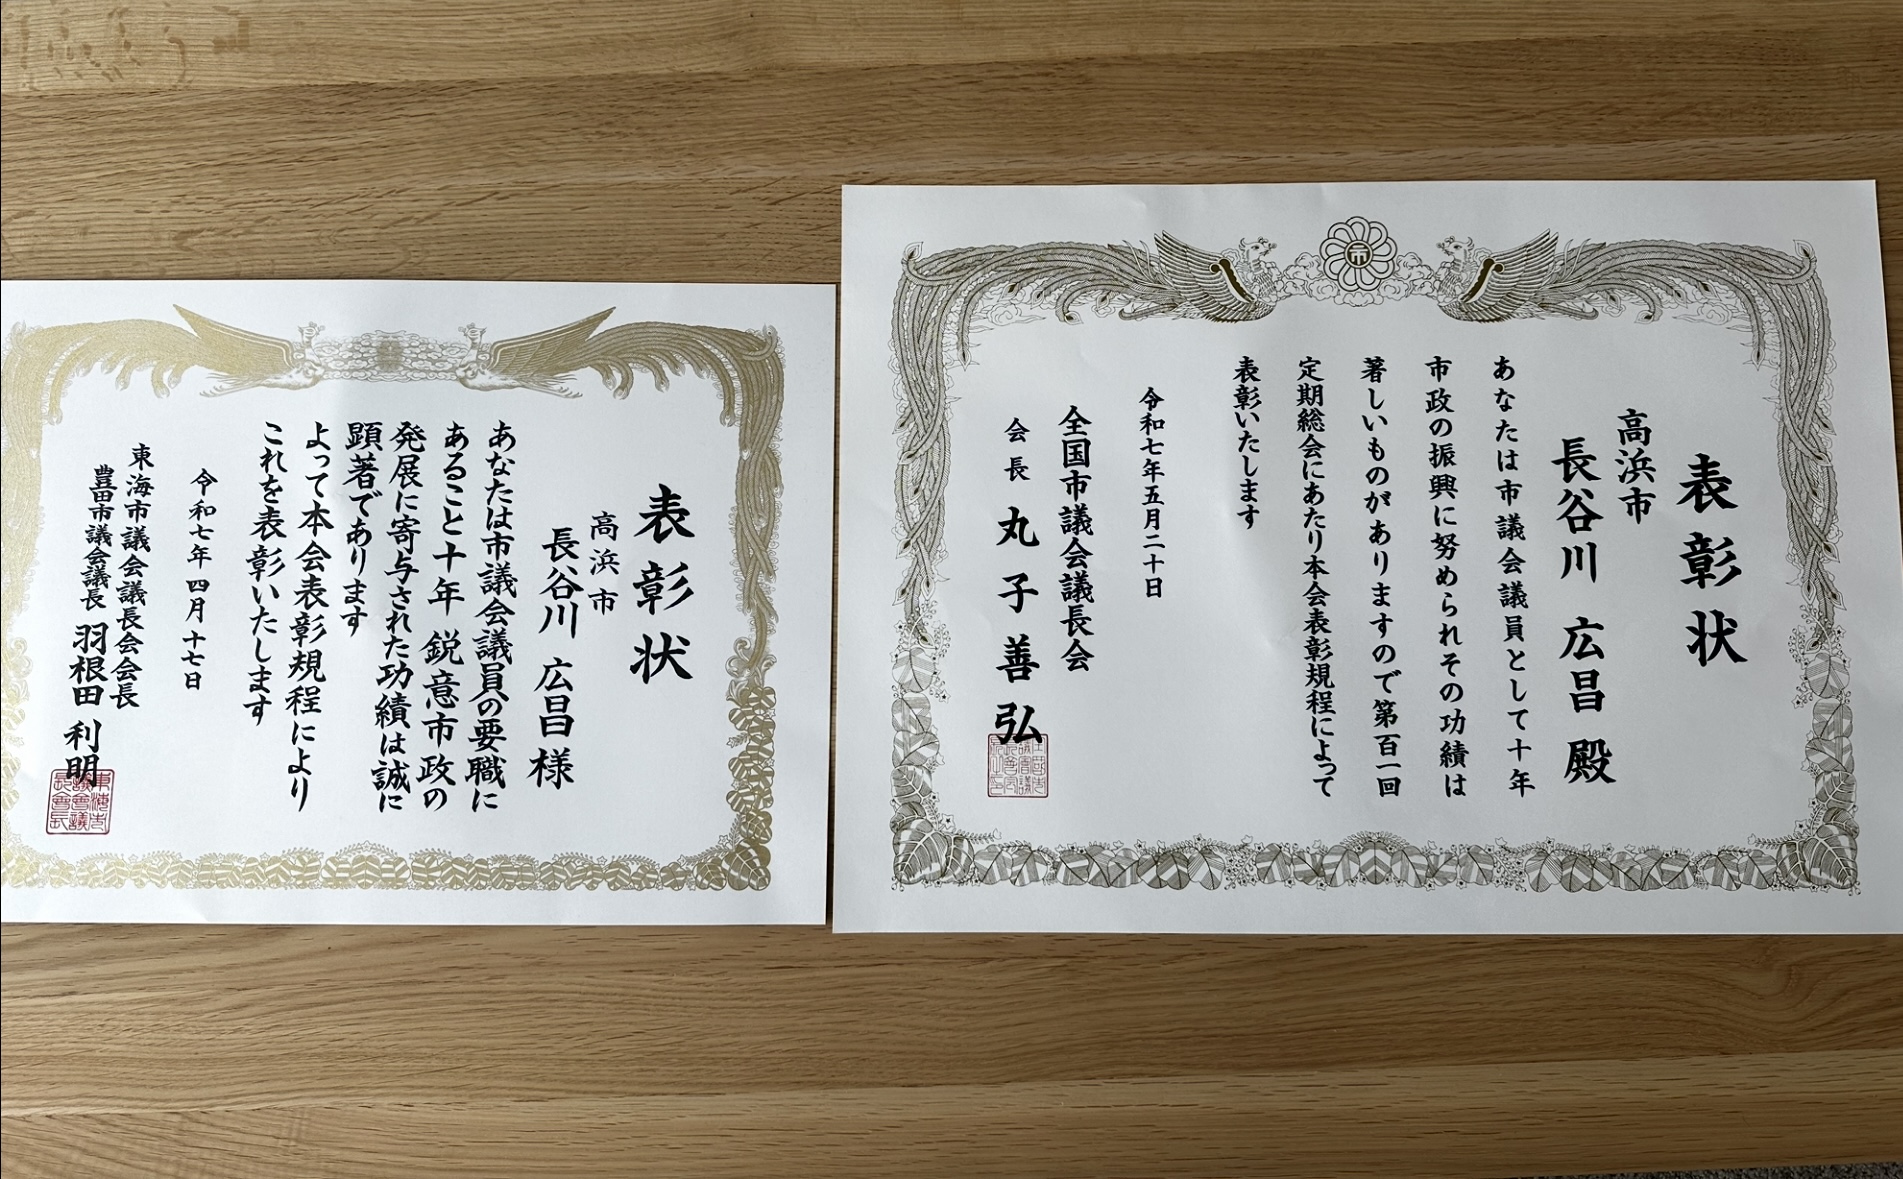 表彰状
高浜市
長谷川 広昌 殿
あなたは市議会議員として十年
市政の振興に努められその功績は
著しいものがありますので第百一回
定期総会にあたり本会表彰規程によって
表彰いたします
令和七年五月二十日
全国市議会議長会
会長 丸子善弘
表彰状
高浜市
長谷川 広昌 様
あなたは市議会議員の要職に
あること十年 鋭意市政の
発展に寄与された功績は誠に
顕著であります
よって本会表彰規程により
これを表彰いたします
令和七年四月十七日
東海市議会議長会会長
豊田市議会議長 羽根田 利明